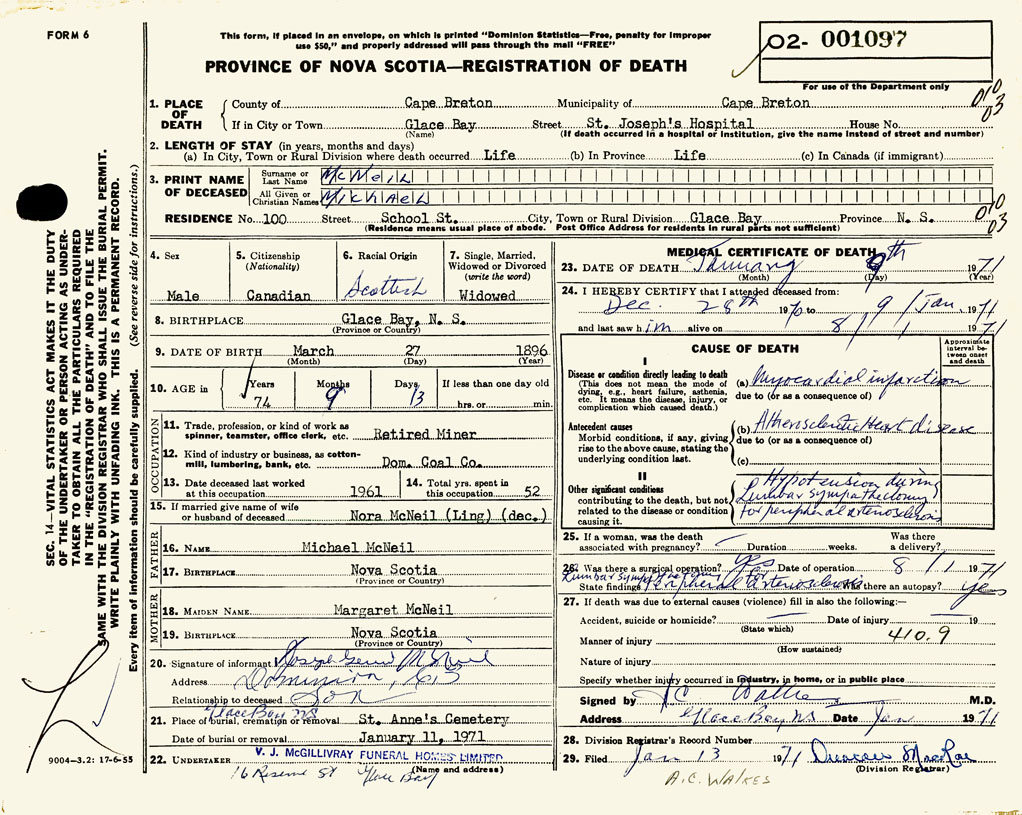 FORM 6
This form, if placed in an envelope, on which is printed "Dominion Statistics—Free, penalty for improper
use $50," and properly addressed will pass through the mail "FREE"
02- 001097
For use of the Department only
PROVINCE OF NOVA SCOTIA—REGISTRATION OF DEATH
1. PLACE OF DEATH County of Cape Breton Municipality of Cape Breton 010
03
If in City or Town Glace Bay Street St. Joseph's Hospital House No.
(Name) (If death occurred in a hospital or institution, give the name instead of street and number)
2. LENGTH OF STAY (in years, months and days)
(a) In City, Town or Rural Division where death occurred Life (b) In Province Life (c) In Canada (if immigrant)
3. PRINT NAME OF DECEASED Surname or Last Name McNeil
All Given or Christian Names Michael
RESIDENCE No. 100 Street School St. City, Town or Rural Division Glace Bay Province N. S. 010
03
(Residence means usual place of abode. Post Office Address for residents in rural parts not sufficient)
4. Sex Male
5. Citizenship (Nationality) Canadian
6. Racial Origin Scottish
7. Single, Married, Widowed or Divorced (write the word) Widowed
8. BIRTHPLACE Glace Bay, N. S.
(Province or Country)
9. DATE OF BIRTH March 27 1896
(Month) (Day) (Year)
10. AGE in Years Months Days If less than one day old
74 9 13 hrs. or min.
OCCUPATION
11. Trade, profession, or kind of work as
spinner, teamster, office clerk, etc. Retired Miner
12. Kind of industry or business, as cotton-
mill, lumbering, bank, etc. Dom. Coal Co.
13. Date deceased last worked
at this occupation 1961
14. Total yrs. spent in
this occupation 52
15. If married give name of wife
or husband of deceased Nora McNeil (Ling) (dec.)
FATHER
16. NAME Michael McNeil
17. BIRTHPLACE Nova Scotia
(Province or Country)
MOTHER
18. MAIDEN NAME Margaret McNeil
19. BIRTHPLACE Nova Scotia
(Province or Country)
20. Signature of informant Joseph McNeil
Address Dominion, C.B.
Relationship to deceased Son
Glace Bay NS
21. Place of burial, cremation or removal St. Anne's Cemetery
Date of burial or removal January 11, 1971
22. UNDERTAKER V. J. McGILLIVRAY FUNERAL HOMES LIMITED
16 Reserve St Glace Bay (Name and address)
MEDICAL CERTIFICATE OF DEATH
23. DATE OF DEATH January 9th 1971
(Month) (Day) (Year)
24. I HEREBY CERTIFY that I attended deceased from:
Dec. 28th 1970 to 9 / Jan. 1971
and last saw him alive on 8 / 1 1971
CAUSE OF DEATH
Approximate interval between onset and death
I
Disease or condition directly leading to death
(This does not mean the mode of
dying, e.g., heart failure, asthenia,
etc. It means the disease, injury, or
complication which caused death.)
(a) Myocardial infarction
due to (or as a consequence of)
Antecedent causes
Morbid conditions, if any, giving
rise to the above cause, stating the
underlying condition last.
(b) Atherosclerotic Heart disease
due to (or as a consequence of)
(c)
II
Other significant conditions
contributing to the death, but not
related to the disease or condition
causing it.
Hypotension during
Lumbar sympathectomy
for peripheral arteriosclerosis
25. If a woman, was the death
associated with pregnancy? Duration weeks. Was there
a delivery?
26. Was there a surgical operation? yes Date of operation 8 / 1 1971
Lumbar sympathectomy for
State findings Peripheral arteriosclerosis Was there an autopsy? yes
27. If death was due to external causes (violence) fill in also the following:—
Accident, suicide or homicide? Date of injury 19
(State which)
Manner of injury 410.9
(How sustained)
Nature of injury
Specify whether injury occurred in industry, in home, or in public place
Signed by A.C. Walkes M.D.
Address Glace Bay NS Date Jan 1971
28. Division Registrar's Record Number
29. Filed Jan 13 1971 Duncan MacRae
(Division Registrar)
A.C. WALKES
SEC. 14—VITAL STATISTICS ACT MAKES IT THE DUTY
OF THE UNDERTAKER OR PERSON ACTING AS UNDER-
TAKER TO OBTAIN ALL THE PARTICULARS REQUIRED
IN THE "REGISTRATION OF DEATH" AND TO FILE THE
SAME WITH THE DIVISION REGISTRAR WHO SHALL ISSUE THE BURIAL PERMIT.
WRITE PLAINLY WITH UNFADING INK. THIS IS A PERMANENT RECORD.
Every item of information should be carefully supplied. (See reverse side for instructions.)
9004—3.2: 17-6-55